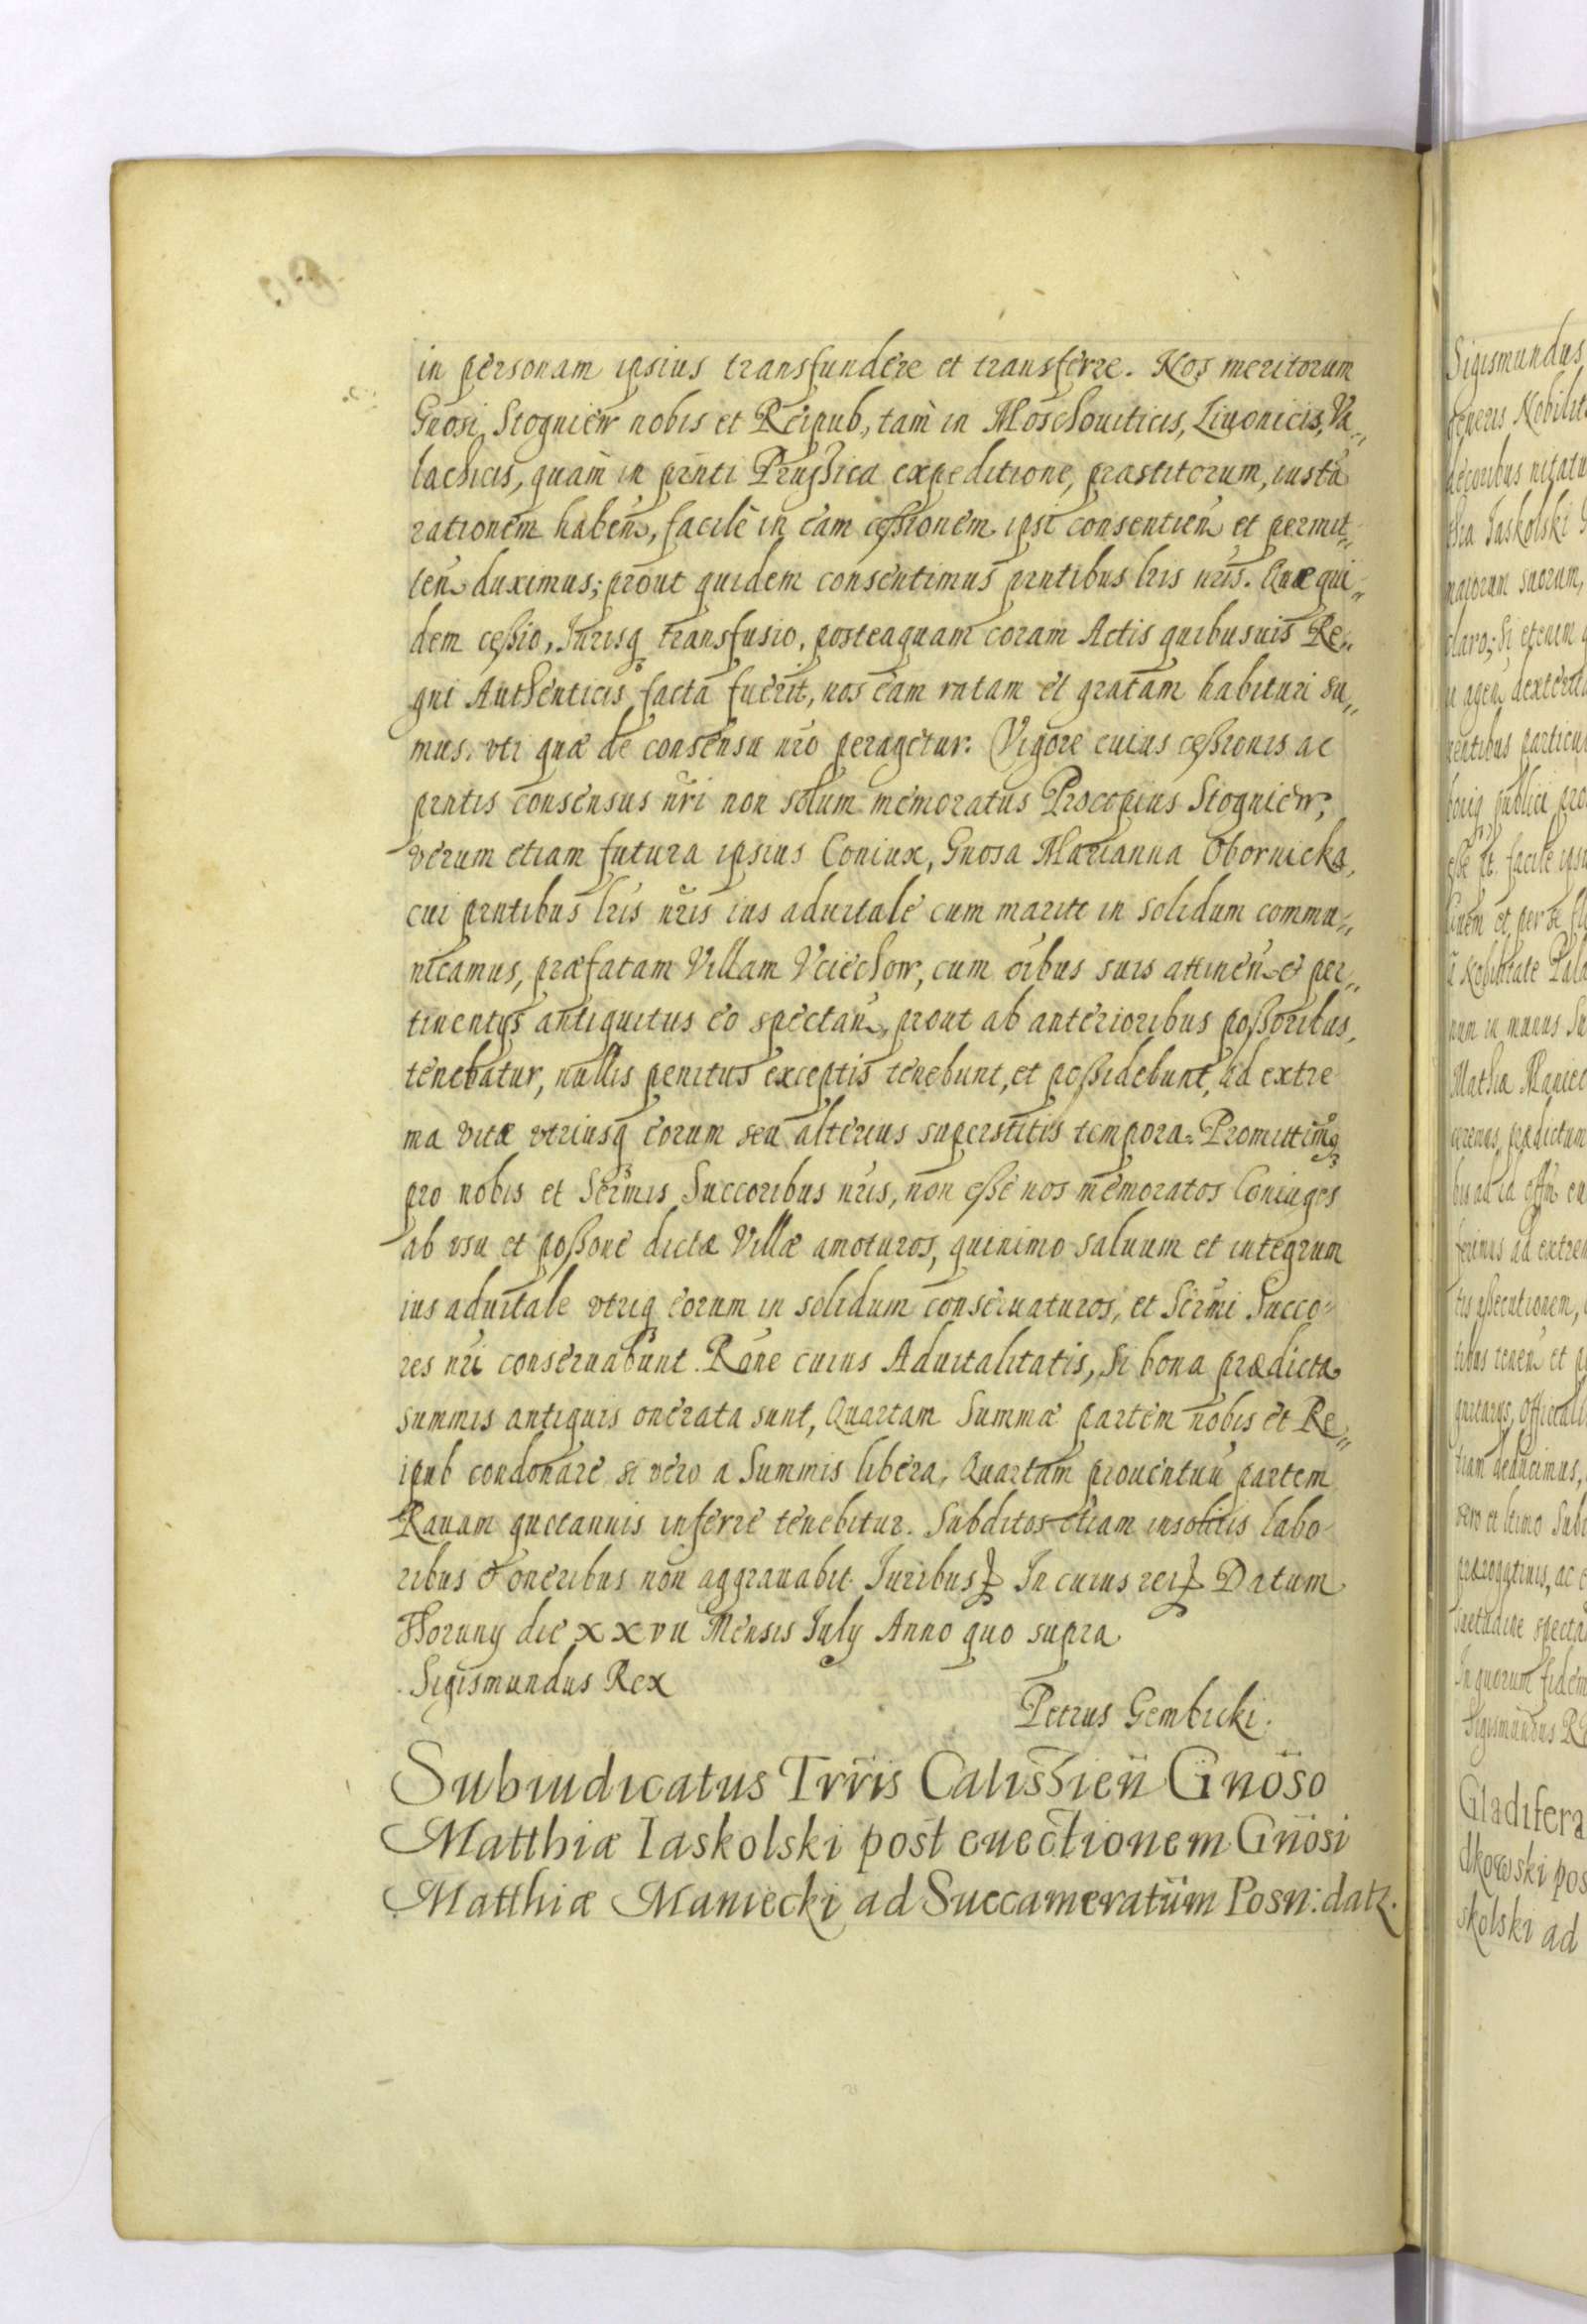 in personam ipsius transfundere et transferre. Nos meritorum
Gnosi Stogniew nobis et Reipub, tam in Moschouiticis, Liuonicis, Va„
lachicis, quàm in prñti Prussica expeditione, præstitorum, iustã
rationem haben, facilè in eam cessionem ipsi consentien et permit„
ten duximus; prout quidem consentimus prntibus lris nris. Quæ qui„
dem cessio, Jurisq transfusio, posteaquam coram Actis quibusuis Re„
gni Authenticis facta fuerit, nos eam ratam et gratam habituri su„
mus. vti quæ de consensu nro peragetur. Vigore cuius cessionis ac
prntis consensus nri non solum memoratus Procopius Stogniew,
verum etiam futura ipsius Coniux, Gnosa Marianna Obornicka,
cui prntibus lris nris ius aduitale cum marito in solidum commu„
nicamus, præfatam Villam Vciechow, cum oibus suis attinen et per„
tinentijs antiquitus eo spectan, prout ab anterioribus possoribus,
tenebatur, nullis penitus exceptis tenebunt, et possidebunt, ad extre
ma vitæ vtriusq eorum seu alterius superstitis tempora. Promittimq
pro nobis et Sermis Succoribus nris, non esse nos memoratos Coniuges
ab vsu et possone dictæ Villæ amoturos, quinimo saluum et integrum
ius aduitale vtriq eorum in solidum conseruaturos, et Sermi Succo„
res nri conseruabunt. Rone cuius Aduitalitatis, si bona prædicta
summis antiquis onerata sunt, Quartam Summæ partem nobis et Re„
ipub condonare si vero a Summis libera, Quartam prouentuu partem
Rauam quotannis inferre tenebitur. Subditos etiam insolitis labo
ribus & oneribus non aggrauabit. Juribus In cuius rei Datum
Thoruny die XXVII Mensis July Anno quo supra
Sigismundus Rex
Petrus Gembicki.
Subiudicatus Trris Calissien Gnoso
Matthiæ Iaskolski post euectionem Gnosi
Matthiæ Maniecki ad Succameratum Posn: datz.
Sigismundus
generis Nobilit
decoribus nitatu
Iaskolski
maiorum suorum,
particu
publici pro
facile ipsi
et per se
Nobilitate Pala
num in manus
Mathia Maniec
prædictum
ad extre
assecutionem,
tenen et
deducimus,
In quorum fidem
Sigismundus R
Gladifera
dkowski pos
skolski ad